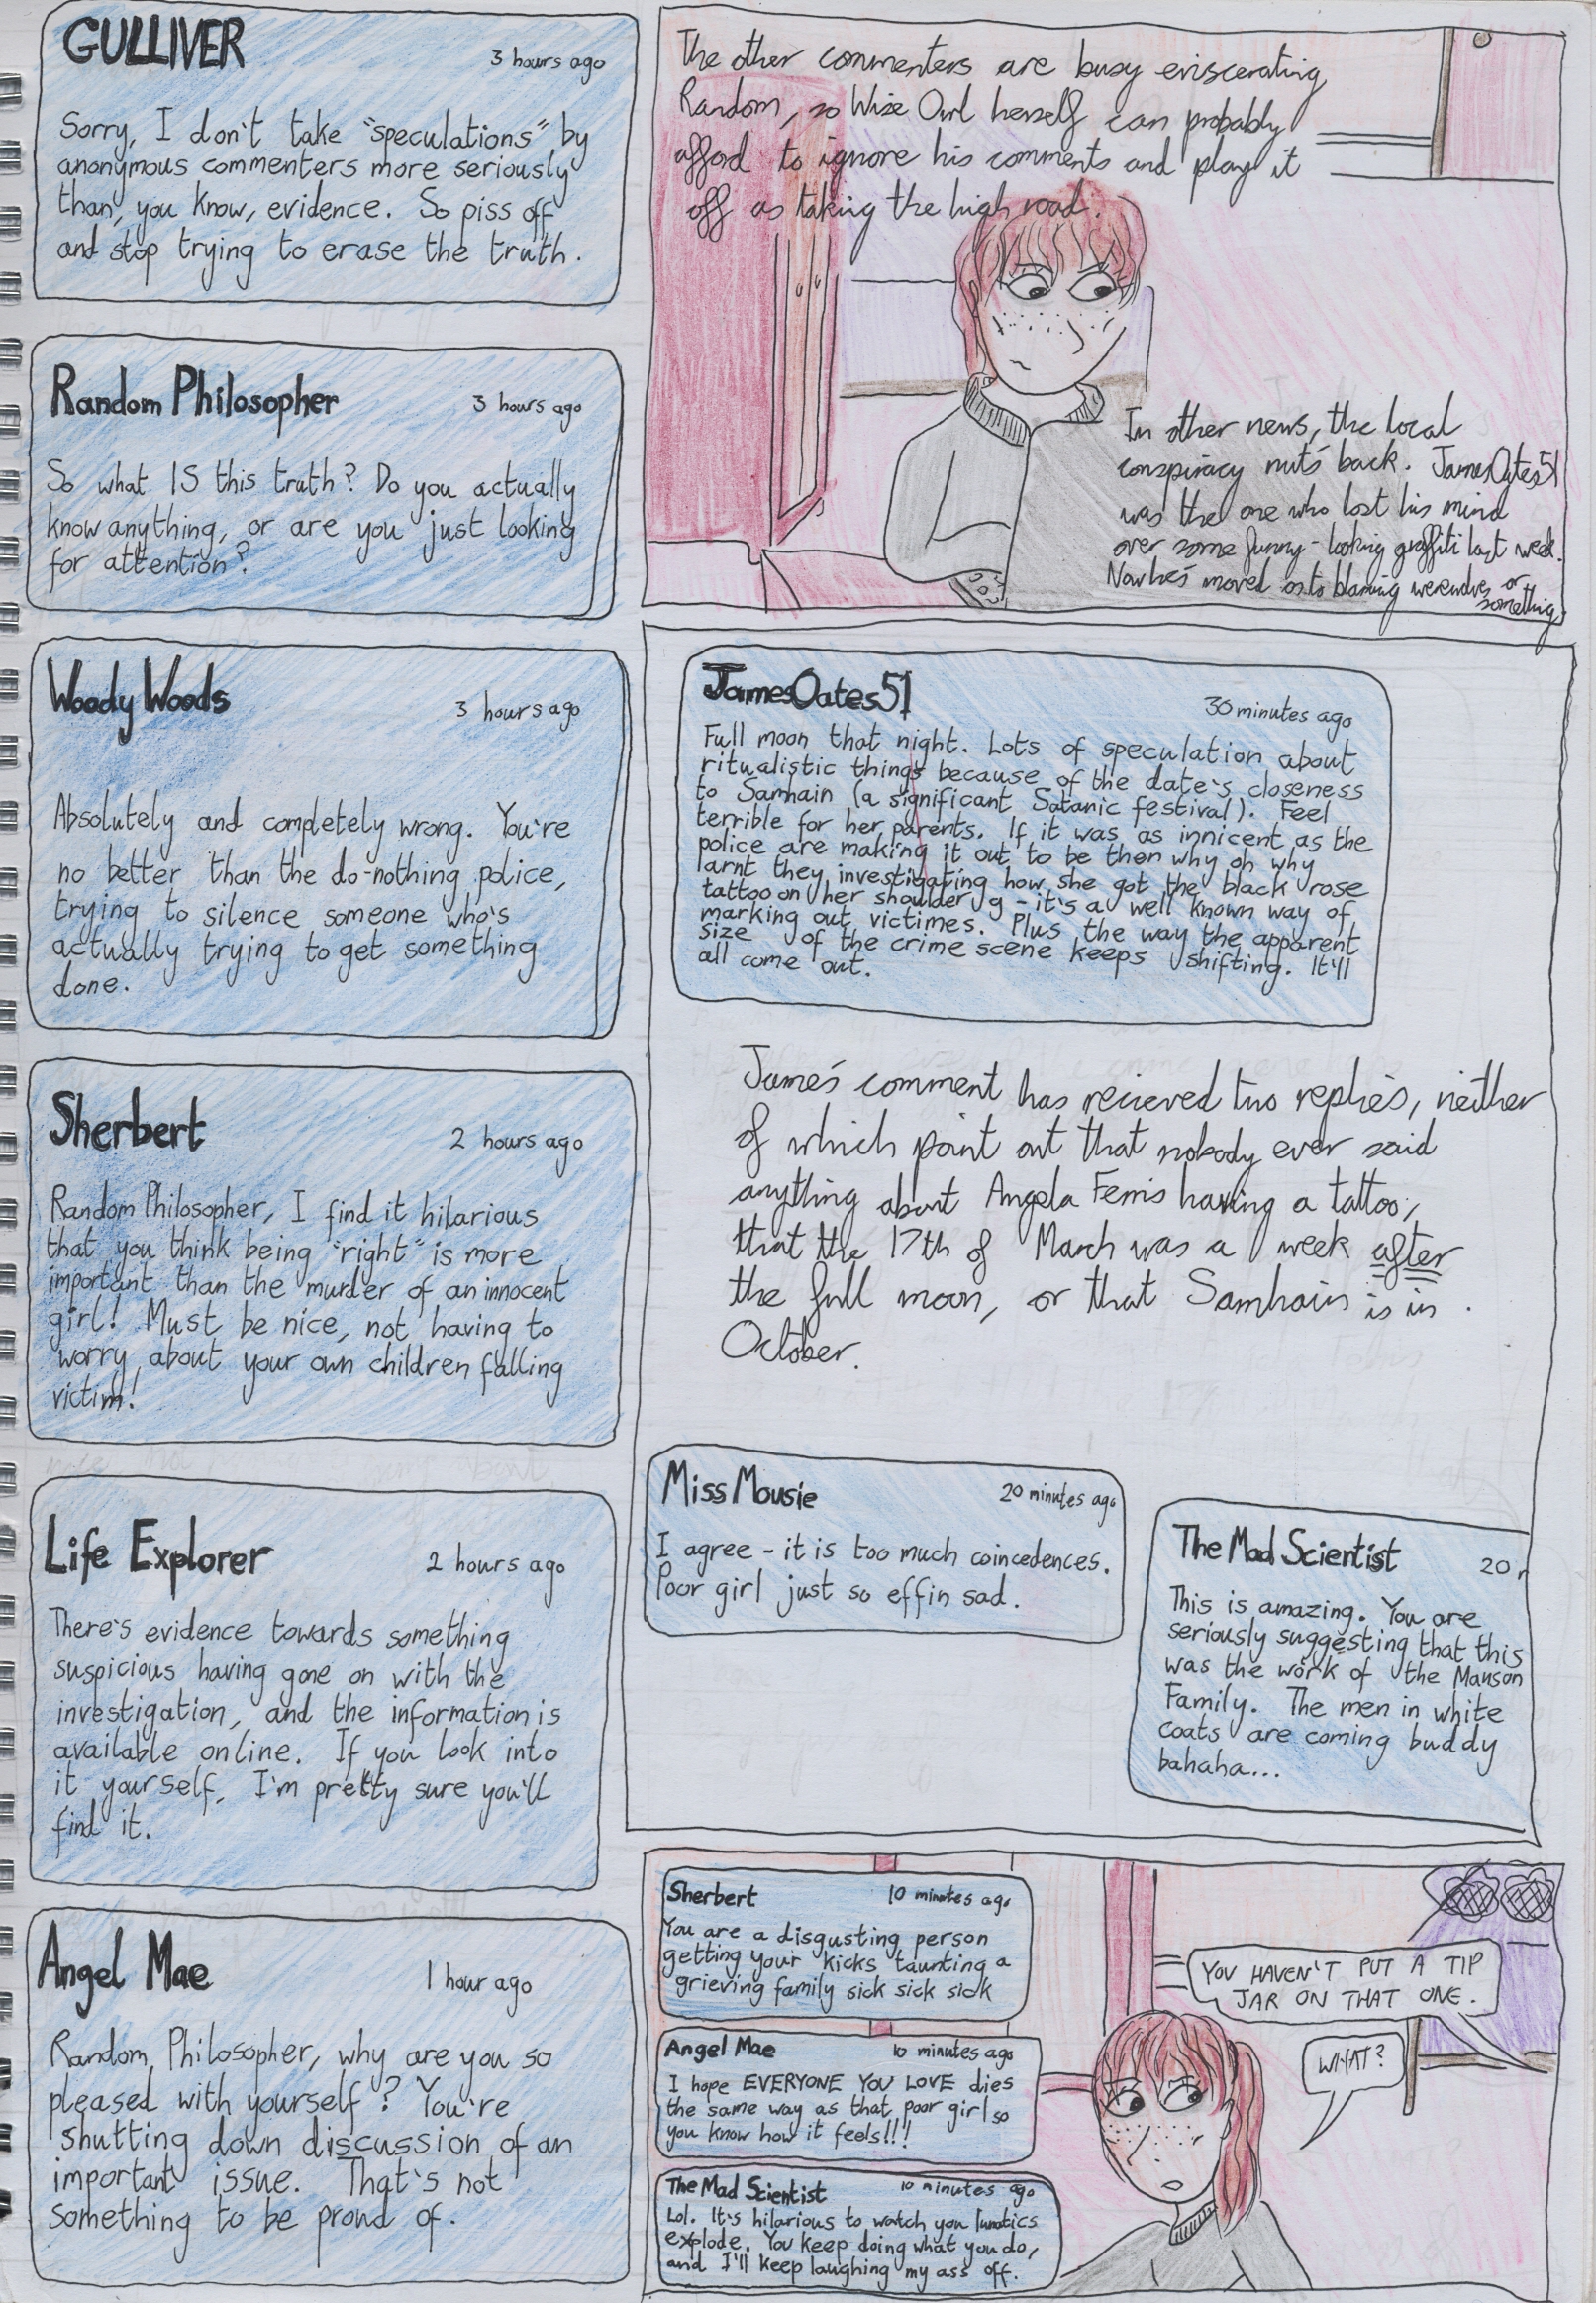 GULLIVER
3 hours ago
Sorry, I don't take "speculations" by
anonymous commenters more seriously
than, you know, evidence. So piss off
and stop trying to erase the truth.
Random Philosopher
3 hours ago
So what IS this truth? Do you actually
know anything, or are you just looking
for attention?
Woody Woods
3 hours ago
Absolutely and completely wrong. You're
no better than the do-nothing police,
trying to silence someone who's
actually trying to get something
done.
Sherbert
2 hours ago
Random Philosopher, I find it hilarious
that you think being "right" is more
important than the murder of an innocent
girl! Must be nice, not having to
worry about your own children falling
victim!
Life Explorer
2 hours ago
There's evidence towards something
suspicious having gone on with the
investigation, and the information is
available online. If you look into
it yourself, I'm pretty sure you'll
find it.
Angel Mae
1 hour ago
Random Philosopher, why are you so
pleased with yourself? You're
shutting down discussion of an
important issue. That's not
something to be proud of.
The other commenters are busy eviscerating
Random, so Wize Owl herself can probably
afford to ignore his comments and play it
off as taking the high road.
In other news, the local
conspiracy nut's back. JamesOates51
was the one who lost his mind
over some funny-looking graffiti last week.
Now he's moved on to blaming werewolves or
something.
JamesOates51
30 minutes ago
Full moon that night. Lots of speculation about
ritualistic things because of the date's closeness
to Samhain (a significant Satanic festival). Feel
terrible for her parents. If it was as innicent as the
police are making it out to be then why oh why
larnt they investigating how she got the black rose
tattoo on her shoulder g - it's a well known way of
marking out victimes. Plus the way the apparent
size of the crime scene keeps shifting. It'll
all come out.
James's comment has recieved two replies, neither
of which point out that nobody ever said
anything about Angela Ferris having a tattoo,
that the 17th of March was a week after
the full moon, or that Samhain is in
October.
Miss Mousie
20 minutes ago
I agree - it is too much coincedences.
Poor girl just so effin sad.
The Mad Scientist
20
This is amazing. You are
seriously suggesting that this
was the work of the Manson
Family. The men in white
coats are coming buddy
bahaha...
Sherbert
10 minutes ago
You are a disgusting person
getting your kicks taunting a
grieving family sick sick sick
Angel Mae
10 minutes ago
I hope EVERYONE YOU LOVE dies
the same way as that poor girl so
you know how it feels!!!
The Mad Scientist
10 minutes ago
Lol. It's hilarious to watch you lunatics
explode. You keep doing what you do,
and I'll keep laughing my ass off.
YOU HAVEN'T PUT A TIP
JAR ON THAT ONE.
WHAT?